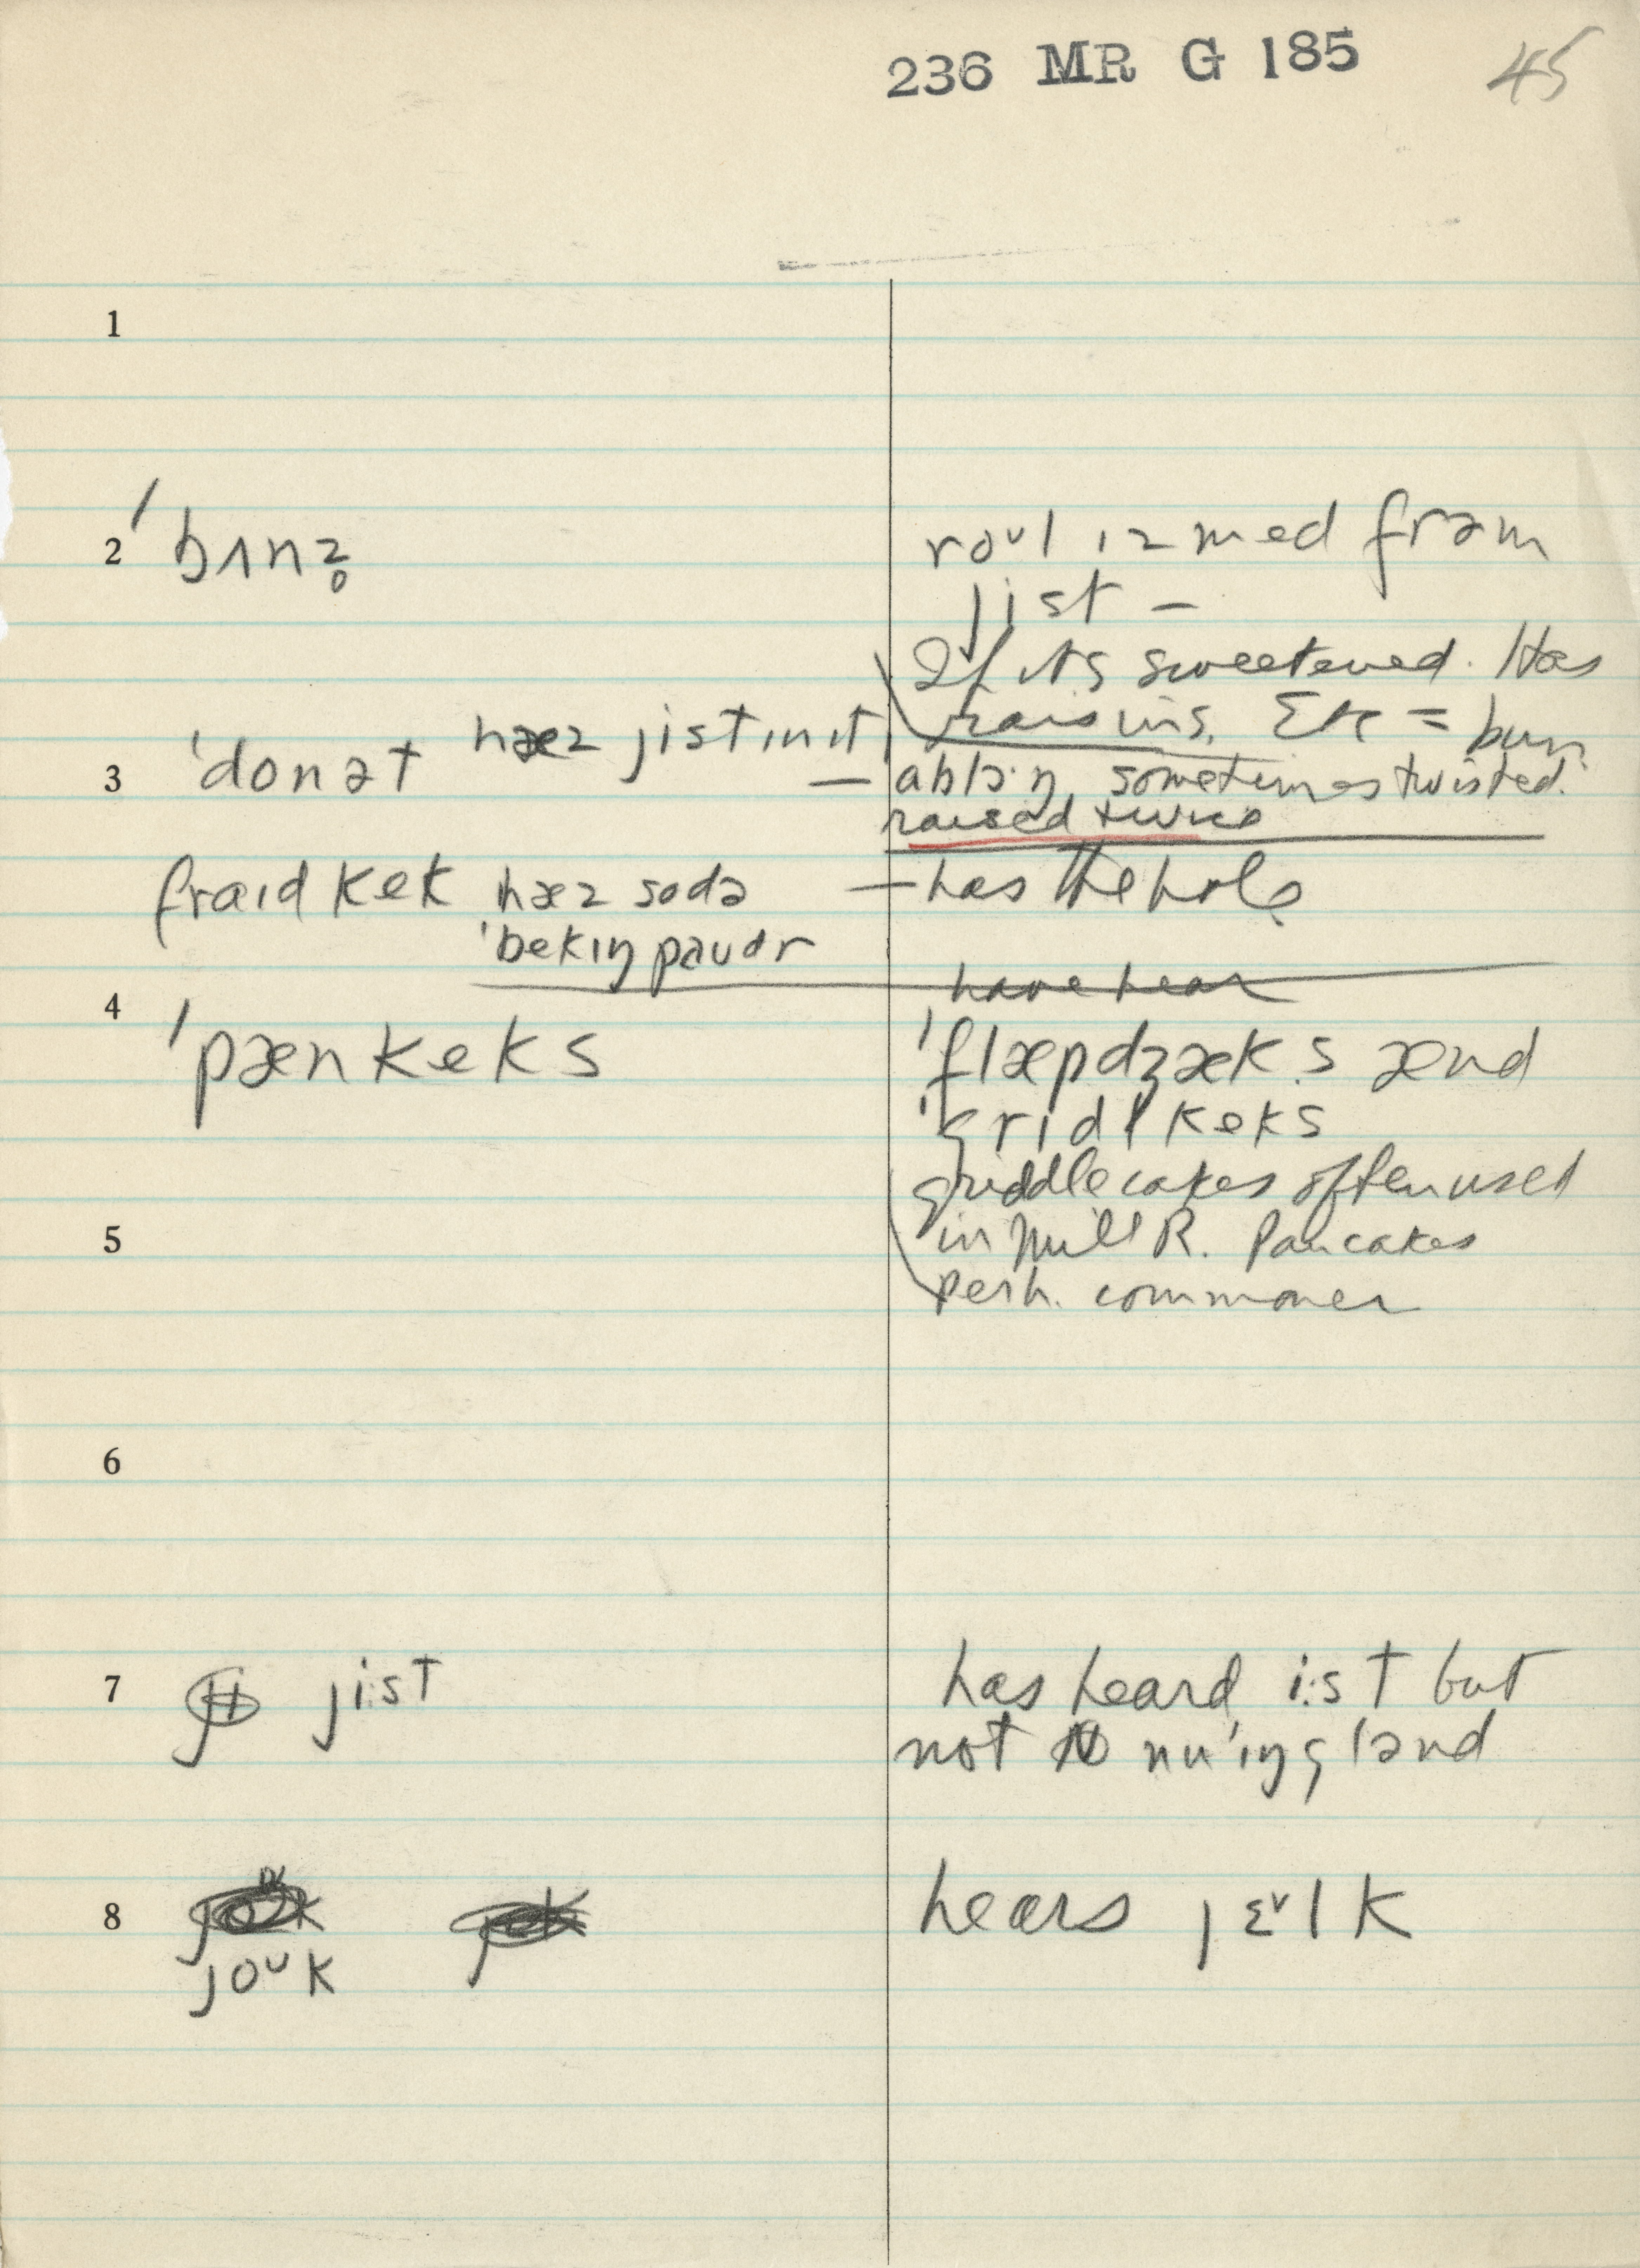 236 MR G 185
45
1
2 ˈbʌnz̥
roᵘl ız med frəm
jist –
If it's sweetened. Has
raisins, Etc = bun
3 ˈdonət hæz jist ın ıt
— ablɔŋ, sometimes twisted.
raised twice
fraıd kek hæz sodə
— has the hole
ˈbekıŋ paudr
have hear
4 ˈpænkeks
ˈflæpdʒæks ænd
ˈgridlkeks
griddle cakes often used
5
in Mill R. Pancakes
perh. commoner
6
7 ji jist
has heard i:st but
not nuˈıŋglənd
8
joᵘk
hears jɛᵛlk